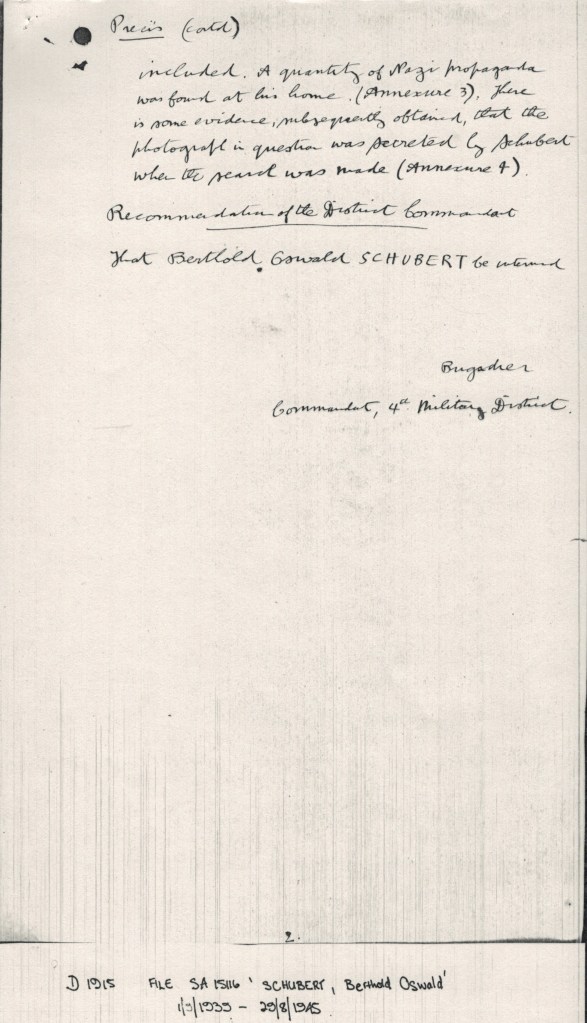 Precis (contd)
included. A quantity of Nazi propaganda
was found at his home. (Annexure 3). There
is some evidence, subsequently obtained, that the
photograph in question was secreted by Schubert
when the search was made (Annexure 4).
Recommendation of the District Commandant
That Berthold Oswald SCHUBERT be interned
Brigadier
Commandant, 4th Military District.
2.
D 1915 FILE SA 15116 'SCHUBERT, Berthold Oswald'
1/9/1939 - 29/8/1945